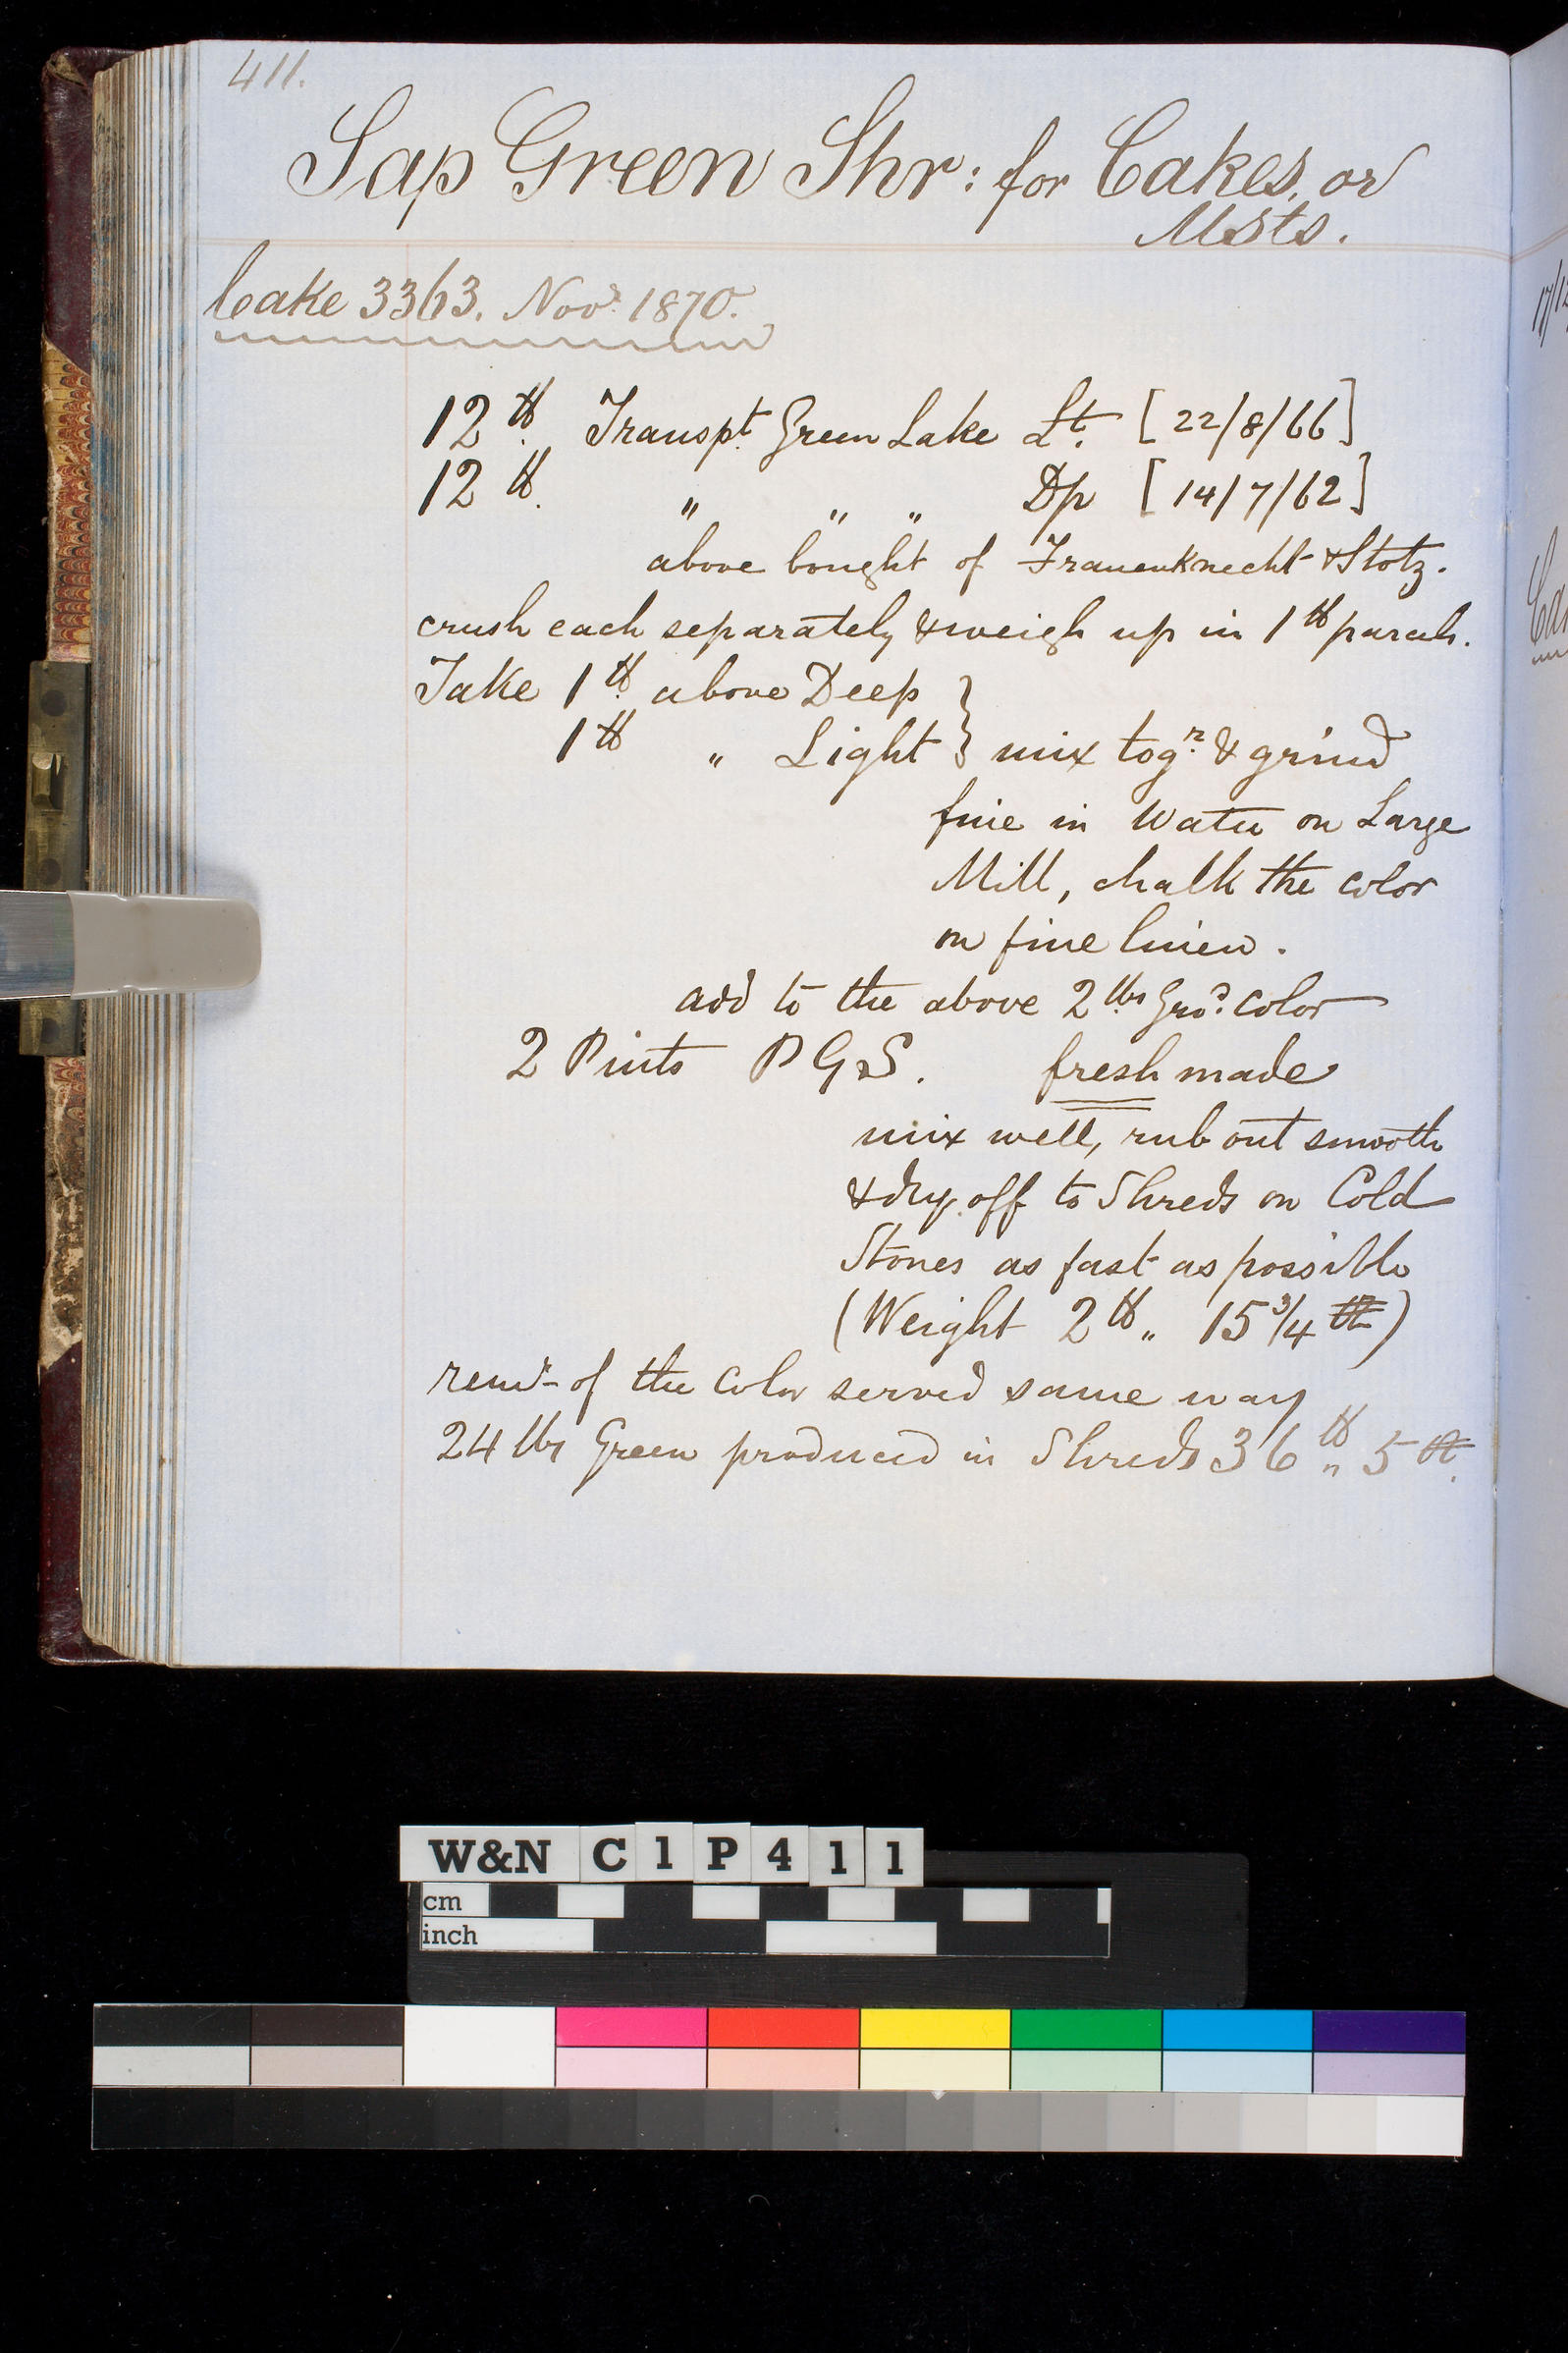 411.
Sap Green Shr: for Cakes, or
Msts.
Cake 3363. Novr. 1870.
12 lb. Transpt. Green Lake Lt. [22/8/66]
12 lb. " " " Dp [14/7/62]
above bought of Frauenknecht & Stotz.
crush each separately & weigh up in 1 lb parcels.
Take 1 lb. above Deep
1 lb " Light } mix togr. & grind
fine in Water on Large
Mill, chalk the color
on fine linen.
add to the above 2 lbs Grod. color
2 Pints P G S. fresh made
mix well, rub out smooth
& dry off to Shreds on Cold
Stones as fast as possible
(Weight 2 lb " 15 3/4
remr. of the color served same way
24 lbs Green produced in Shreds 36 lb " 5
17/12
Ca
W&N C1P411
cm
inch